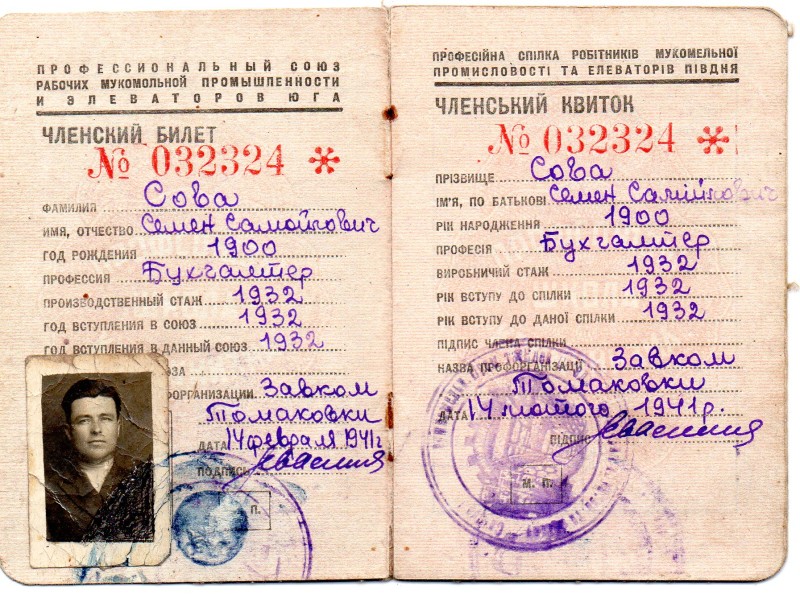 ПРОФЕССИОНАЛЬНЫЙ СОЮЗ
РАБОЧИХ МУКОМОЛЬНОЙ ПРОМЫШЛЕННОСТИ
И ЭЛЕВАТОРОВ ЮГА
ЧЛЕНСКИЙ БИЛЕТ
№ 032324 *
ФАМИЛИЯ Сова
ИМЯ, ОТЧЕСТВО Семен Самойлович
ГОД РОЖДЕНИЯ 1900
ПРОФЕССИЯ Бухгалтер
ПРОИЗВОДСТВЕННЫЙ СТАЖ 1932
ГОД ВСТУПЛЕНИЯ В СОЮЗ 1932
ГОД ВСТУПЛЕНИЯ В ДАННЫЙ СОЮЗ 1932
ЮЗА
ФОРГАНИЗАЦИИ Завком
Томаковки
ДАТА 14 февраля 1941г
ПОДПИСЬ
П.
ПРОФЕСІЙНА СПІЛКА РОБІТНИКІВ МУКОМЕЛЬНОЇ
ПРОМИСЛОВОСТІ ТА ЕЛЕВАТОРІВ ПІВДНЯ
ЧЛЕНСЬКИЙ КВИТОК
№ 032324 *
ПРІЗВИЩЕ Сова
ІМ'Я, ПО БАТЬКОВІ Семен Самійлович
РІК НАРОДЖЕННЯ 1900
ПРОФЕСІЯ Бухгалтер
ВИРОБНИЧИЙ СТАЖ 1932
РІК ВСТУПУ ДО СПІЛКИ 1932
РІК ВСТУПУ ДО ДАНОЇ СПІЛКИ 1932
ПІДПИС ЧЛЕНА СПІЛКИ
НАЗВА ПРОФОРГАНІЗАЦІЇ Завком
Томаковки
ДАТА 14 лютого 1941р.
ПІДПИС
М. П.